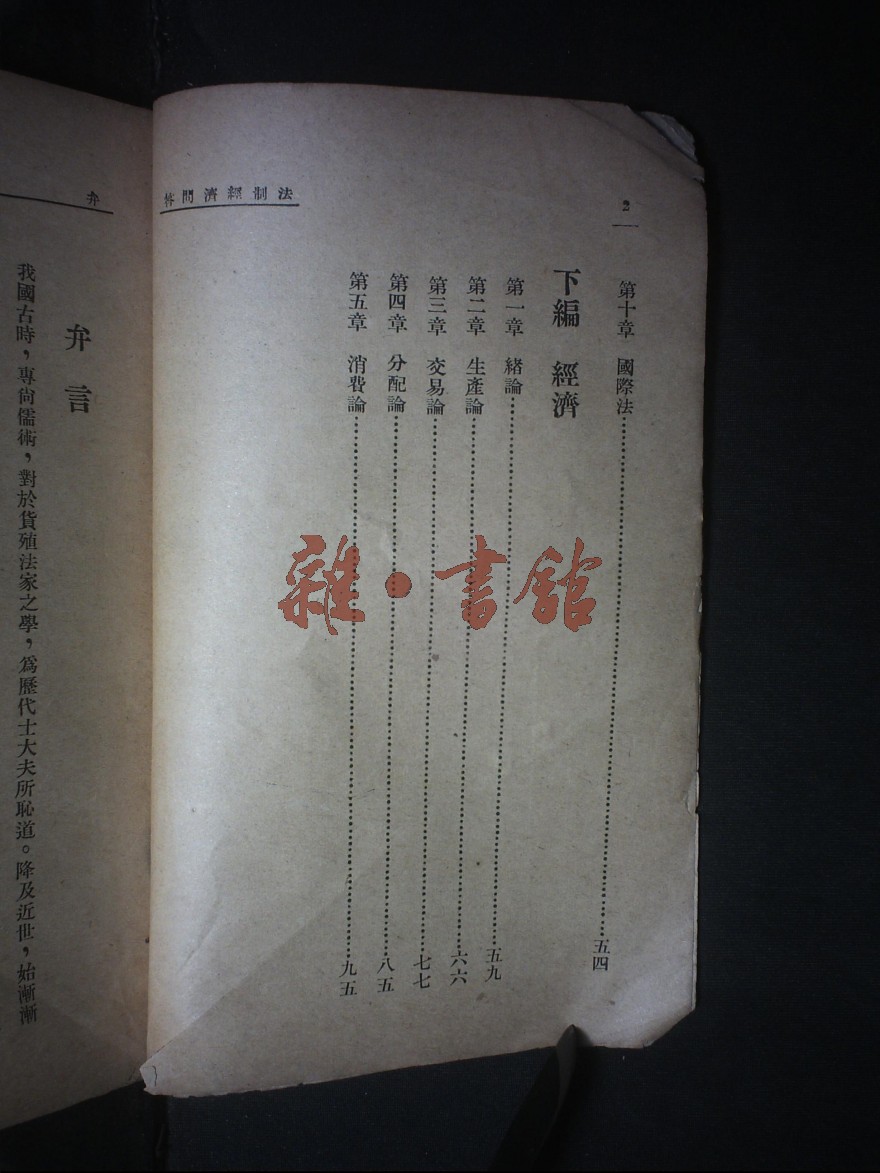 法制經濟問答
2
第十章 國際法……五四
下編 經濟
第一章 緒論……五九
第二章 生產論……六六
第三章 交易論……七七
第四章 分配論……八五
第五章 消費論……九五
雜·書館
弁
弁言
我國古時，專尙儒術，對於貨殖法家之學，爲歷代士大夫所恥道。降及近世，始漸漸